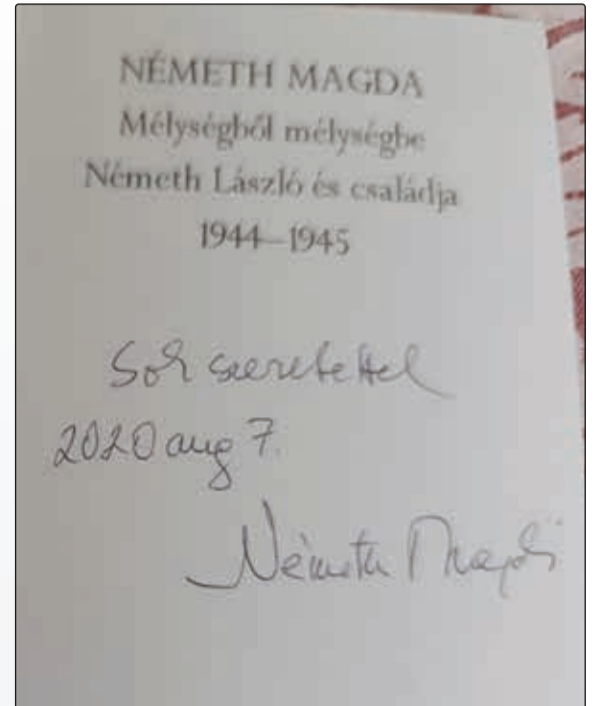 NÉMETH MAGDA
Mélységből mélységbe
Németh László és családja
1944–1945
Sok szeretettel
2020 aug 7.
Németh Magdi